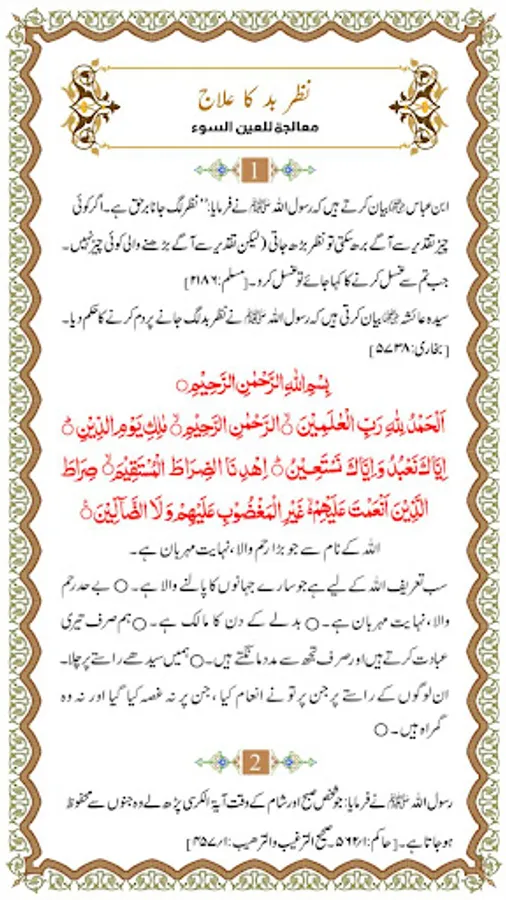 نظر بد کا علاج
معالجة للعين السوء
1
ابن عباس ﷠ بیان کرتے ہیں کہ رسول اللہ ﷺ نے فرمایا: ”نظر لگ جانا برحق ہے۔ اگر کوئی
چیز تقدیر سے آگے بڑھ سکتی تو نظر بڑھ جاتی (لیکن تقدیر سے آگے بڑھنے والی کوئی چیز نہیں۔
جب تم سے غسل کرنے کا کہا جائے تو غسل کرو۔ [مسلم: ۲۱۸۶]
سیدہ عائشہ بیان کرتی ہیں کہ رسول اللہ ﷺ نے نظر بد لگ جانے پر دم کرنے کا حکم دیا۔
[بخاری: ۵۷۳۸]
بِسْمِ اللهِ الرَّحْمٰنِ الرَّحِيْمِ○
اَلْحَمْدُ لِلّٰهِ رَبِّ الْعٰلَمِيْنَ ۙ الرَّحْمٰنِ الرَّحِيْمِ ۙ مٰلِكِ يَوْمِ الدِّيْنِ ؕ
اِيَّاكَ نَعْبُدُ وَاِيَّاكَ نَسْتَعِيْنُ ؕ اِهْدِنَا الصِّرَاطَ الْمُسْتَقِيْمَ ۙ صِرَاطَ
الَّذِيْنَ اَنْعَمْتَ عَلَيْهِمْ ۙ غَيْرِ الْمَغْضُوْبِ عَلَيْهِمْ وَلَا الضَّآلِّيْنَ ۠
اللہ کے نام سے جو بڑا رحم والا، نہایت مہربان ہے۔
سب تعریف اللہ کے لیے ہے جو سارے جہانوں کا پالنے والا ہے۔ ○ بے حد رحم
والا، نہایت مہربان ہے۔ ○ بدلے کے دن کا مالک ہے۔ ○ ہم صرف تیری
عبادت کرتے ہیں اور صرف تجھ سے مدد مانگتے ہیں۔ ○ ہمیں سیدھے راستے پر چلا۔
ان لوگوں کے راستے پر جن پر تو نے انعام کیا، جن پر نہ غصہ کیا گیا اور نہ وہ
گمراہ ہیں۔ ○
2
رسول اللہ ﷺ نے فرمایا: جو شخص صبح اور شام کے وقت آیۃ الکرسی پڑھ لے وہ جنوں سے محفوظ
ہو جاتا ہے۔ [حاکم: ۱/ ۵۶۲۔ صحیح الترغیب والترھیب: ۱/ ۴۵۷]